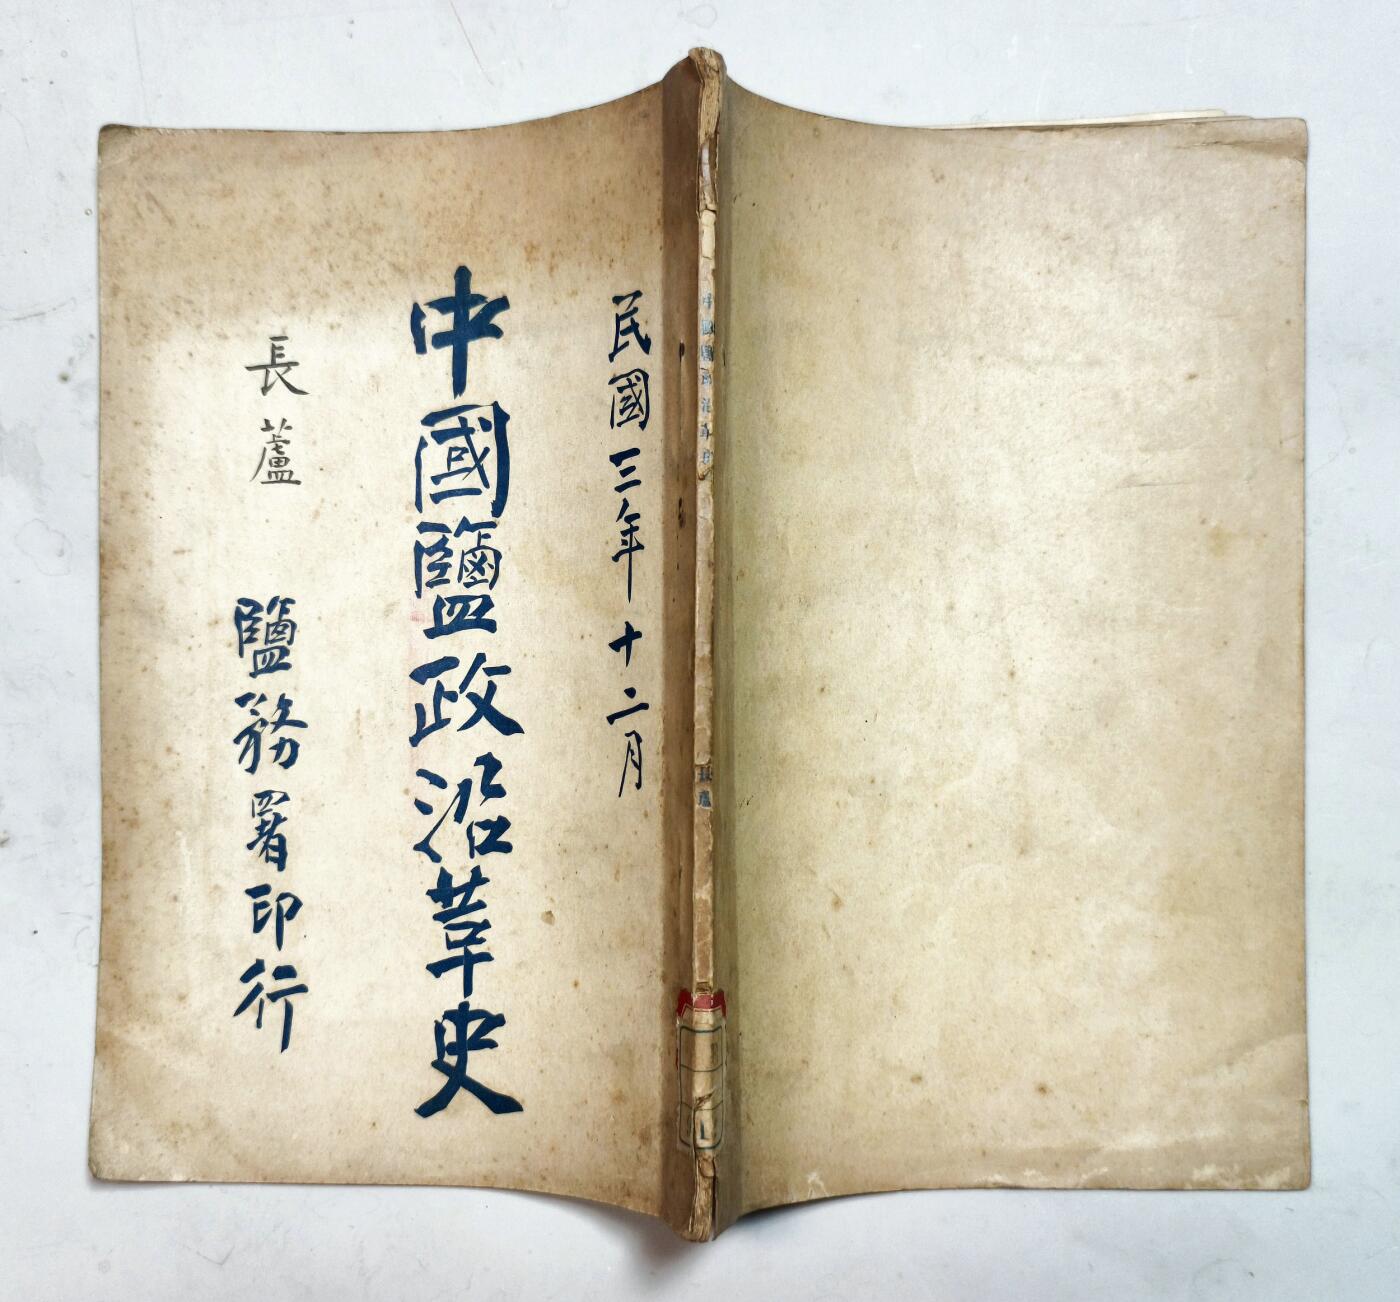 民國三年十二月
中國鹽政沿革史
長蘆
鹽務署印行
中國鹽政沿革史
長蘆